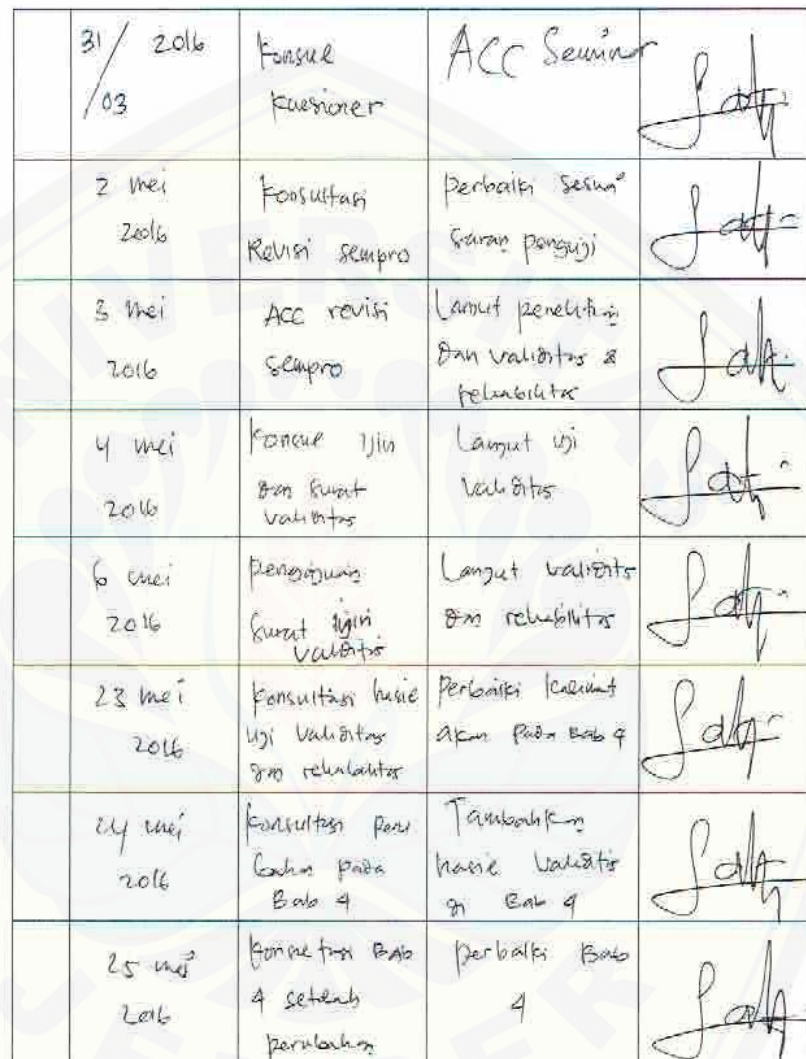 31/03 2016
Konsul
Kuesioner
ACC Seminar
2 Mei
2016
Konsultasi
Revisi sempro
Perbaiki sesuai
saran penguji
3 Mei
2016
ACC revisi
sempro
Lanjut penelitian
dan validitas &
reliabilitas
4 Mei
2016
Konsul ijin
dan surat
validitas
Lanjut uji
validitas
6 Mei
2016
Pengajuan
surat ijin
validitas
Lanjut validitas
dan reliabilitas
23 Mei
2016
Konsultasi hasil
uji validitas
dan reliabilitas
Perbaiki kalimat
akan pada Bab 4
24 Mei
2016
Konsultasi peru
bahan pada
Bab 4
Tambahkan
hasil validitas
di Bab 4
25 Mei
2016
Konsultasi BAB
4 setelah
perubahan
perbaiki Bab
4
UNIVERSITAS
JEMBER